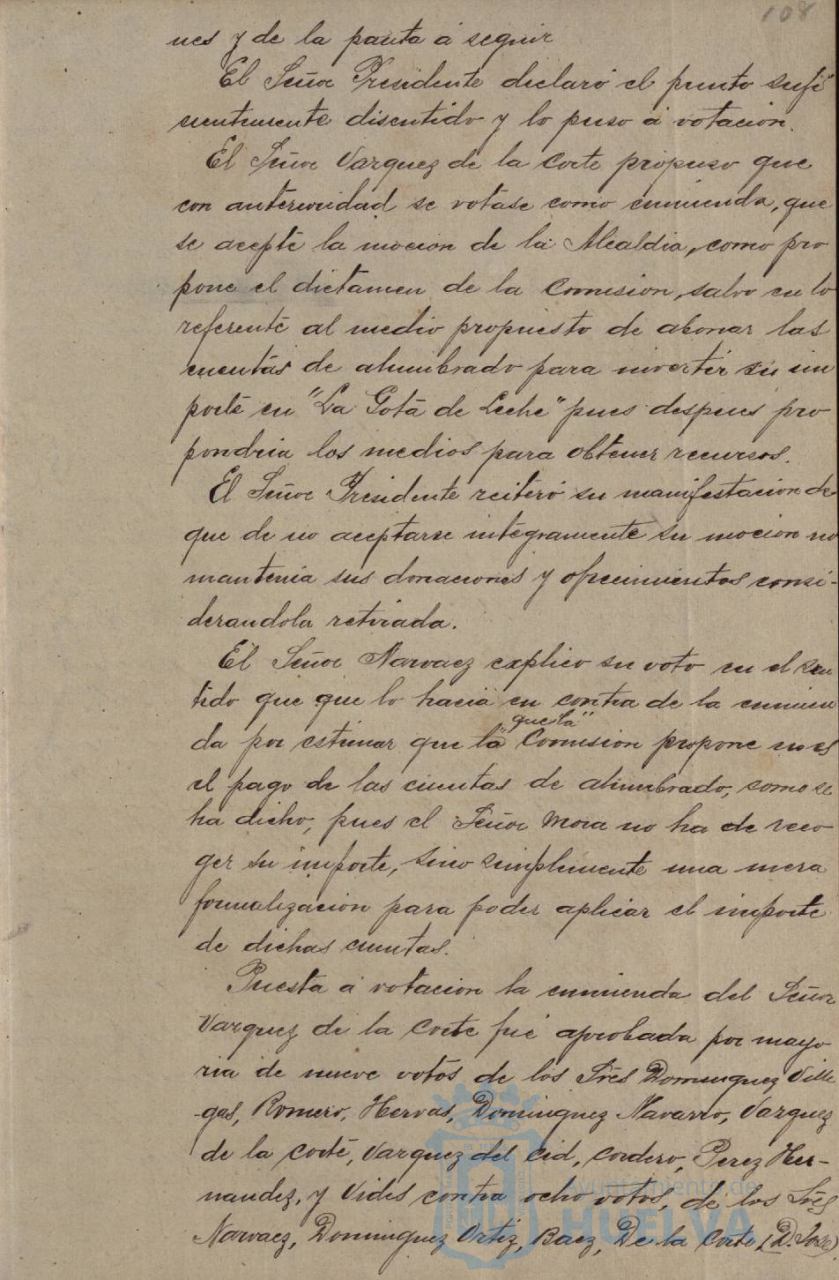 108
nes y de la pauta á seguir
El Señor Presidente declaró el punto sufi
cientemente discutido y lo puso á votación.
El Señor Vazquez de la Corte propuso que
con anterioridad se votase como enmienda, que
se acepte la mocion de la Alcaldia, como pro
pone el dictamen de la Comision, salvo en lo
referente al medio propuesto de abonar las
cuentas de alumbrado para invertir su im
porte en "La Gota de Leche" pues despues pro
pondria los medios para obtener recursos.
El Señor Presidente reiteró su manifestacion de
que de no aceptarse integramente su mocion no
mantenia sus donaciones y ofrecimientos consi-
derandola retirada.
El Señor Narvaez explico su voto en el sen
tido que que lo hacia en contra de la enmien
da por estimar que la "que la" Comision propone no es
el pago de las cuentas de alumbrado, como se
ha dicho, pues el Señor Mora no ha de reco
ger su importe, sino simplemente una mera
formalizacion para poder aplicar el importe
de dichas cuentas.
Puesta á votacion la enmienda del Señor
Vazquez de la Corte fué aprobada por mayo
ria de nueve votos de los Sres Dominguez Ville
gas, Romero, Hervas, Dominguez Navarro, Vazquez
de la Corte, Vazquez del Cid, Cordero, Perez Her-
nandez, y Vides contra ocho votos, de los Sres
Narvaez, Dominguez Ortiz, Baez, De la Corte (D. José),
Ayuntamiento de
HUELVA